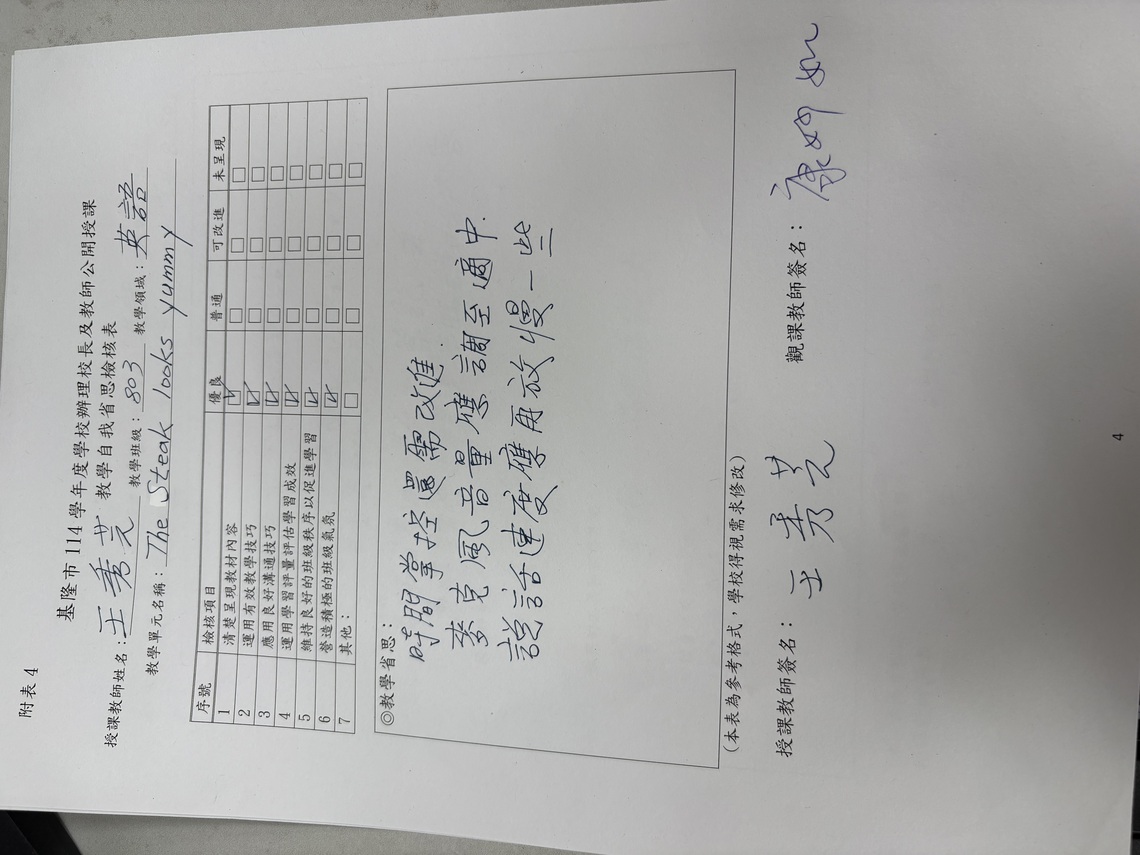 附表 4
基隆市 114 學年度學校辦理校長及教師公開授課
教學自我省思檢核表
授課教師姓名：王秀芸 教學班級：803 教學領域：英語
教學單元名稱：The Steak looks yummy
序號 檢核項目 優良 普通 可改進 未呈現
1 清楚呈現教材內容 ☑ □ □ □
2 運用有效教學技巧 ☑ □ □ □
3 應用良好溝通技巧 ☑ □ □ □
4 運用學習評量評估學習成效 ☑ □ □ □
5 維持良好的班級秩序以促進學習 ☑ □ □ □
6 營造積極的班級氣氛 ☑ □ □ □
7 其他： □ □ □ □
◎教學省思：
時間掌控還需改進.
麥克風音量應調至適中.
說話速度應再放慢一些
(本表為參考格式，學校得視需求修改)
授課教師簽名：王秀芸 觀課教師簽名：康婷如
4